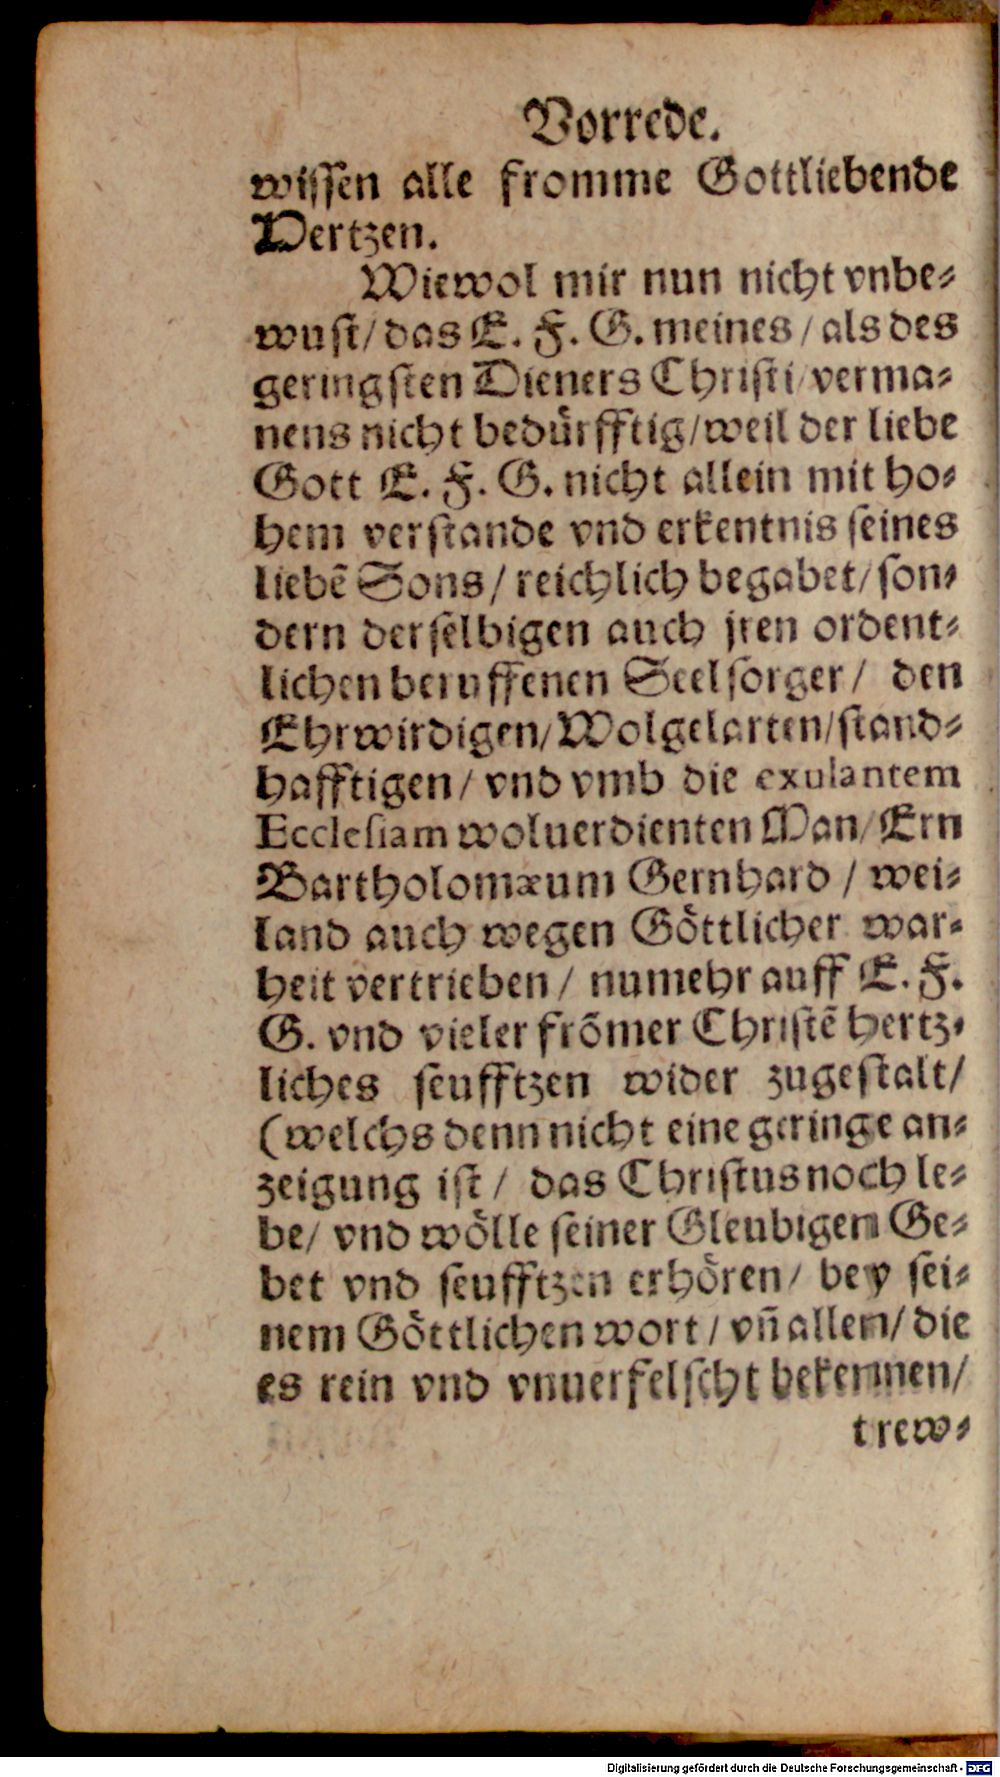 Vorrede.
wissen alle fromme Gottliebende
Hertzen.
Wiewol mir nun nicht vnbe⸗
wust/ das E. F. G. meines / als des
geringsten Dieners Christi/ verma⸗
nens nicht bedürfftig/ weil der liebe
Gott E. F. G. nicht allein mit ho⸗
hem verstande vnd erkentnis seines
liebẽ Sons / reichlich begabet/ son⸗
dern derselbigen auch jren ordent⸗
lichen beruffenen Seelsorger / den
Ehrwirdigen/ Wolgelarten/ stand⸗
hafftigen / vnd vmb die exulantem
Ecclesiam woluerdienten Man/ Ern
Bartholomæum Gernhard / wei⸗
land auch wegen Göttlicher war⸗
heit vertrieben / numehr auff E. F.
G. vnd vieler frõmer Christẽ hertz⸗
liches seufftzen wider zugestalt/
(welchs denn nicht eine geringe an⸗
zeigung ist / das Christus noch le⸗
be/ vnd wölle seiner Gleubigen Ge⸗
bet vnd seufftzen erhören/ bey sei⸗
nem Göttlichen wort / vñ allen/ die
es rein vnd vnuerfelscht bekennen/
trew⸗
Digitalisierung gefördert durch die Deutsche Forschungsgemeinschaft - DFG